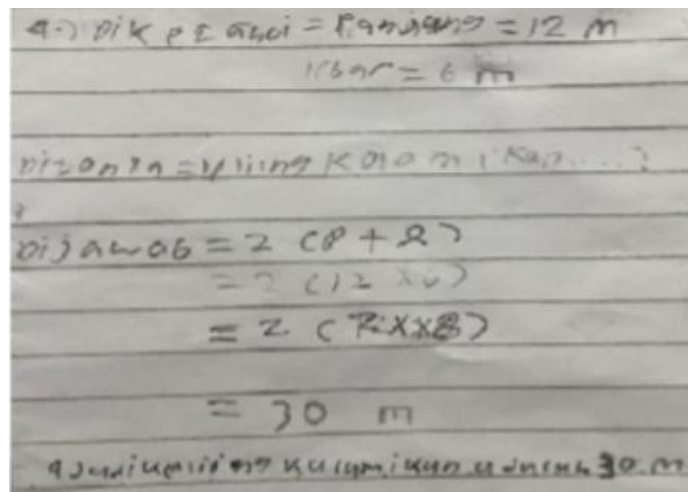 4.) Dik petani = Panjang = 12 m
lebar = 6 m
Ditanya = kliling kolam ikan....?
Dijawab = 2 (P + l)
= 2 (12 x 6)
= 2
= 30 m
kolam ikan adalah 30 m